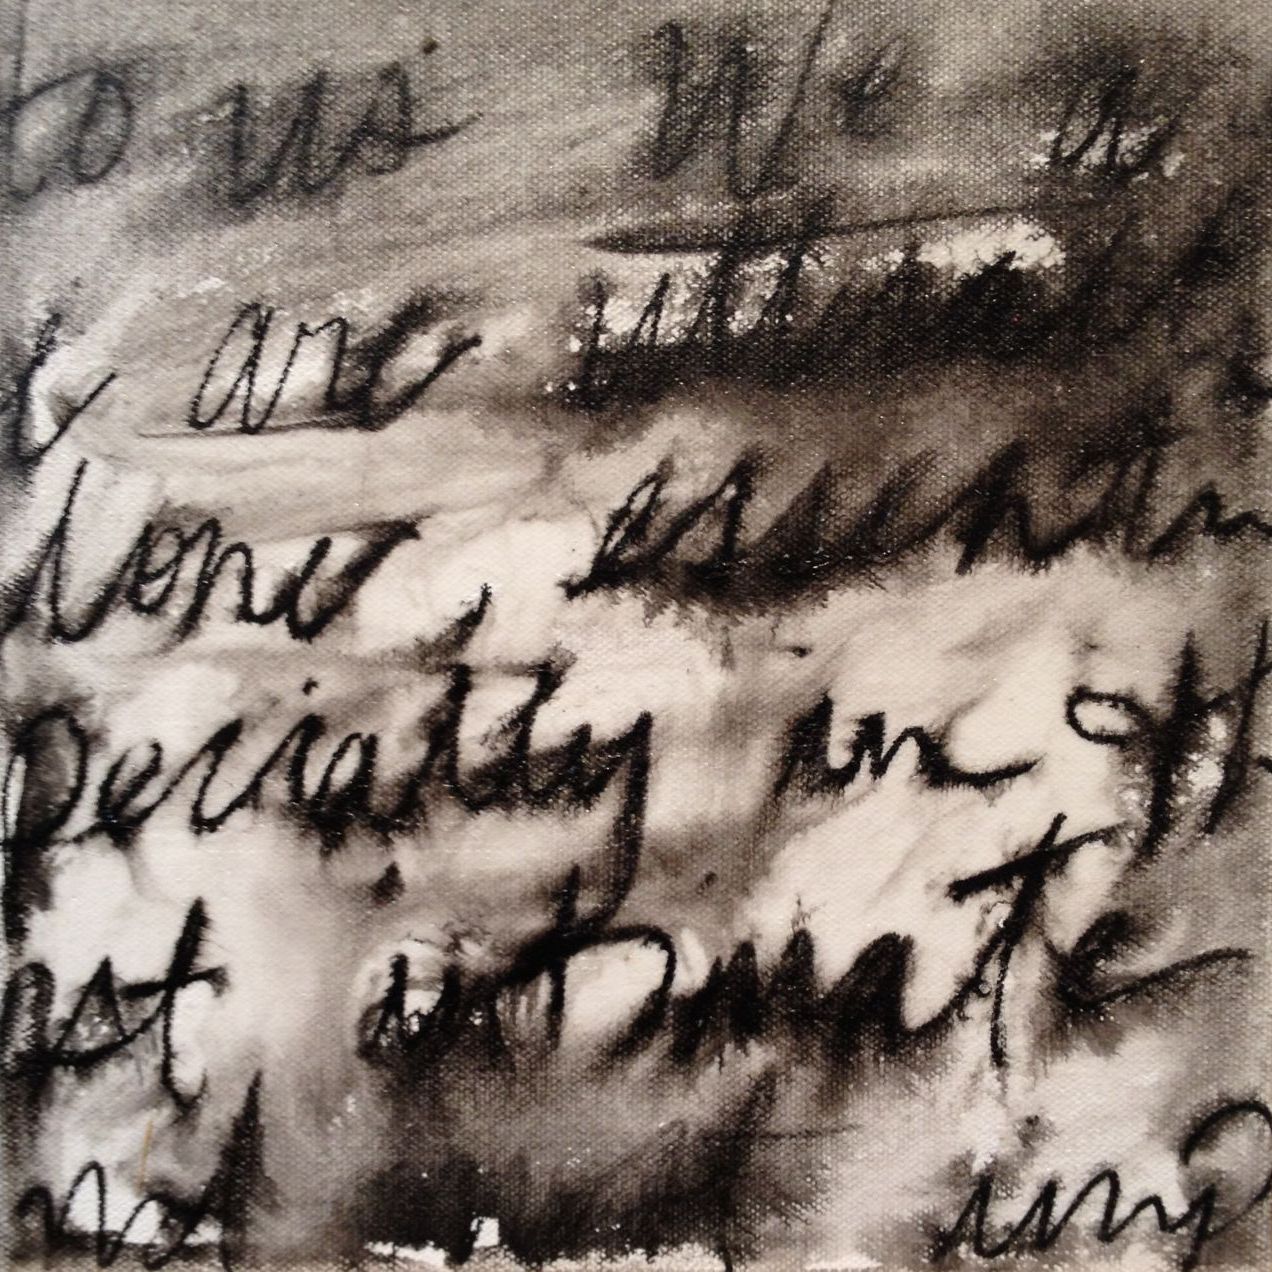 to us. We a
e are utte
lone, essentia
pecially in
st intimate
nd imp